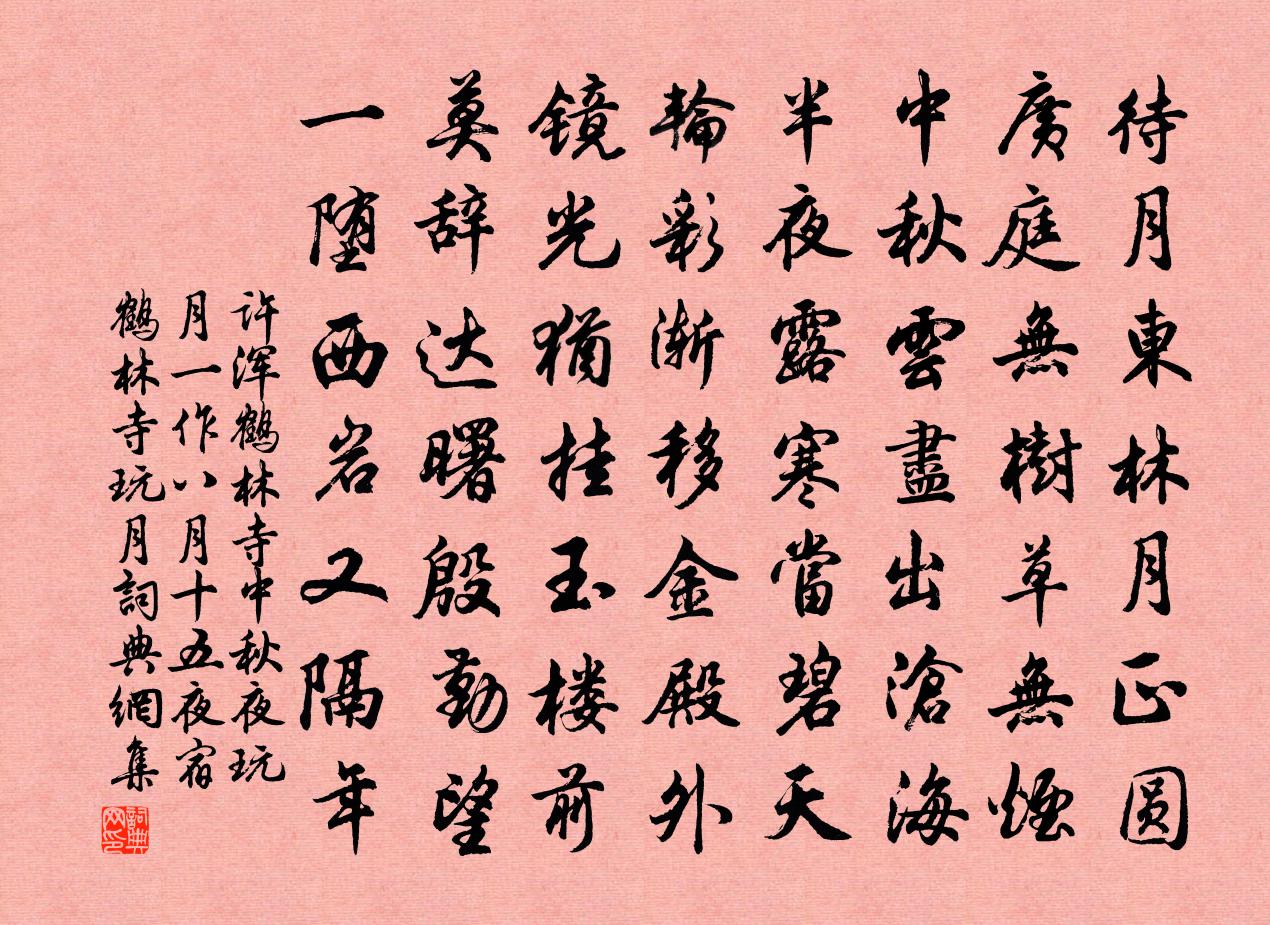 待月東林月正圆
廣庭無樹草無煙
中秋雲盡出滄海
半夜露寒當碧天
輪彩渐移金殿外
镜光猶挂玉楼前
莫辞达曙殷勤望
一堕西岩又隔年
许浑鹤林寺中秋夜玩
月一作八月十五夜宿
鹤林寺玩月詞典網集
詞典网印